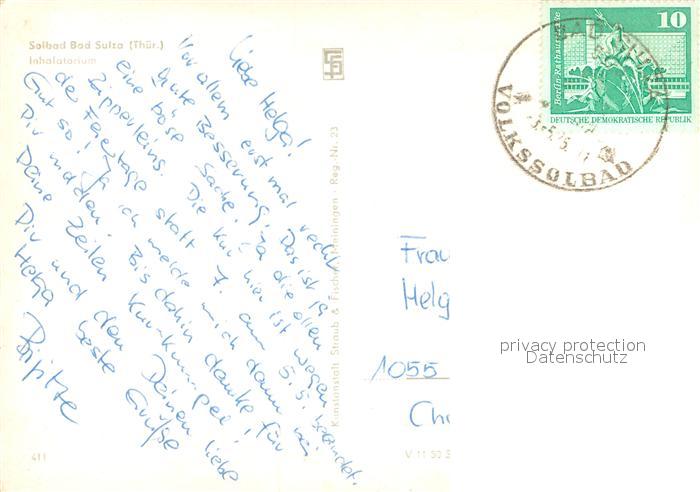 Solbad Bad Sulza (Thür.)
Inhalatorium
Liebe Helga!
Vor allem erst mal recht
gute Besserung. Das ist ja
eine böse Sache! Ja die ollen
Zipperleins. Die Kur hier ist wegen
der Feiertage statt 7. am 5.5. beendet.
Gut so! Ja ich melde mich dann bei
Dir und den Bis dahin danke für
Deine Zeilen Kur-Kumpel!
Dir und den Deinen liebe
Helga beste Grüße
Brigitte
411
Kunstanstalt Straub & Fischer Meiningen Reg.-Nr. 23
V 11 50
10
Berlin-Rathausstraße
DEUTSCHE DEMOKRATISCHE REPUBLIK
BAD SULZA
VOLKSSOLBAD
Frau
Helg
1055
Ch
privacy protection
Datenschutz